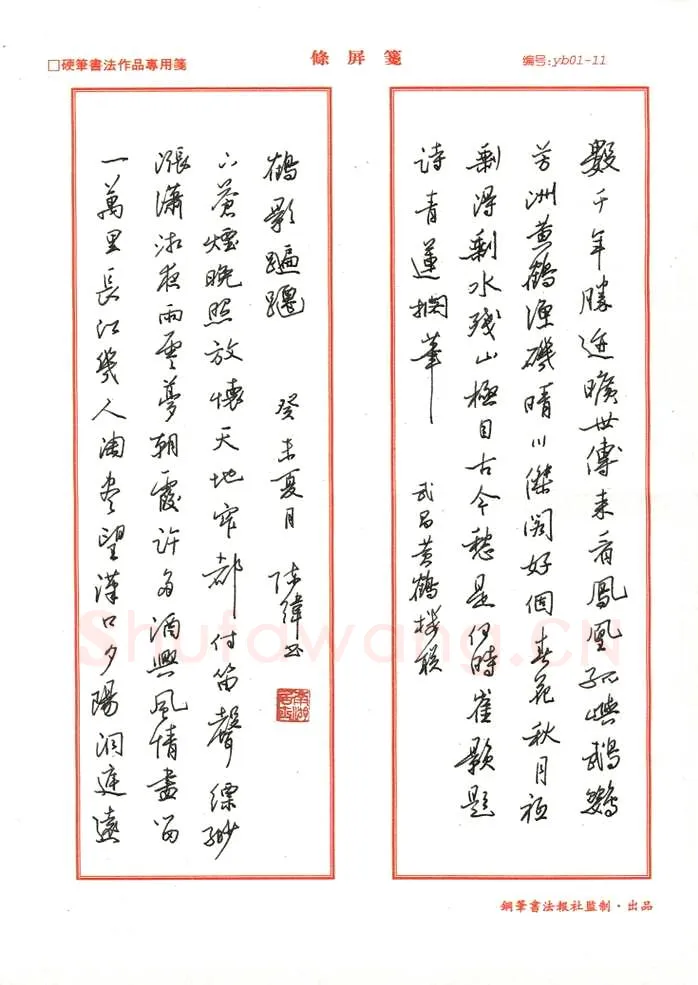 □硬筆書法作品專用箋
條屏箋
编号:yb01-11
數千年勝迹曠世傳来看鳳凰孤嶼鵡鸚
芳洲黄鶴漁磯晴川傑阁好個春花秋月祗
剩得剩水殘山極目古今愁是何時崔顥題
詩青蓮擱筆 武昌黄鶴楼联
一萬里長江幾人淘尽望漢口夕陽洞庭遠
漲瀟湘夜雨雲夢朝霞許多酒興風情盡留
下蒼煙晚照放懷天地窄都付笛聲縹緲
鶴影蹁躚 癸未夏月 陈緯书
Shufawang.CN
鋼筆書法报社监制·出品